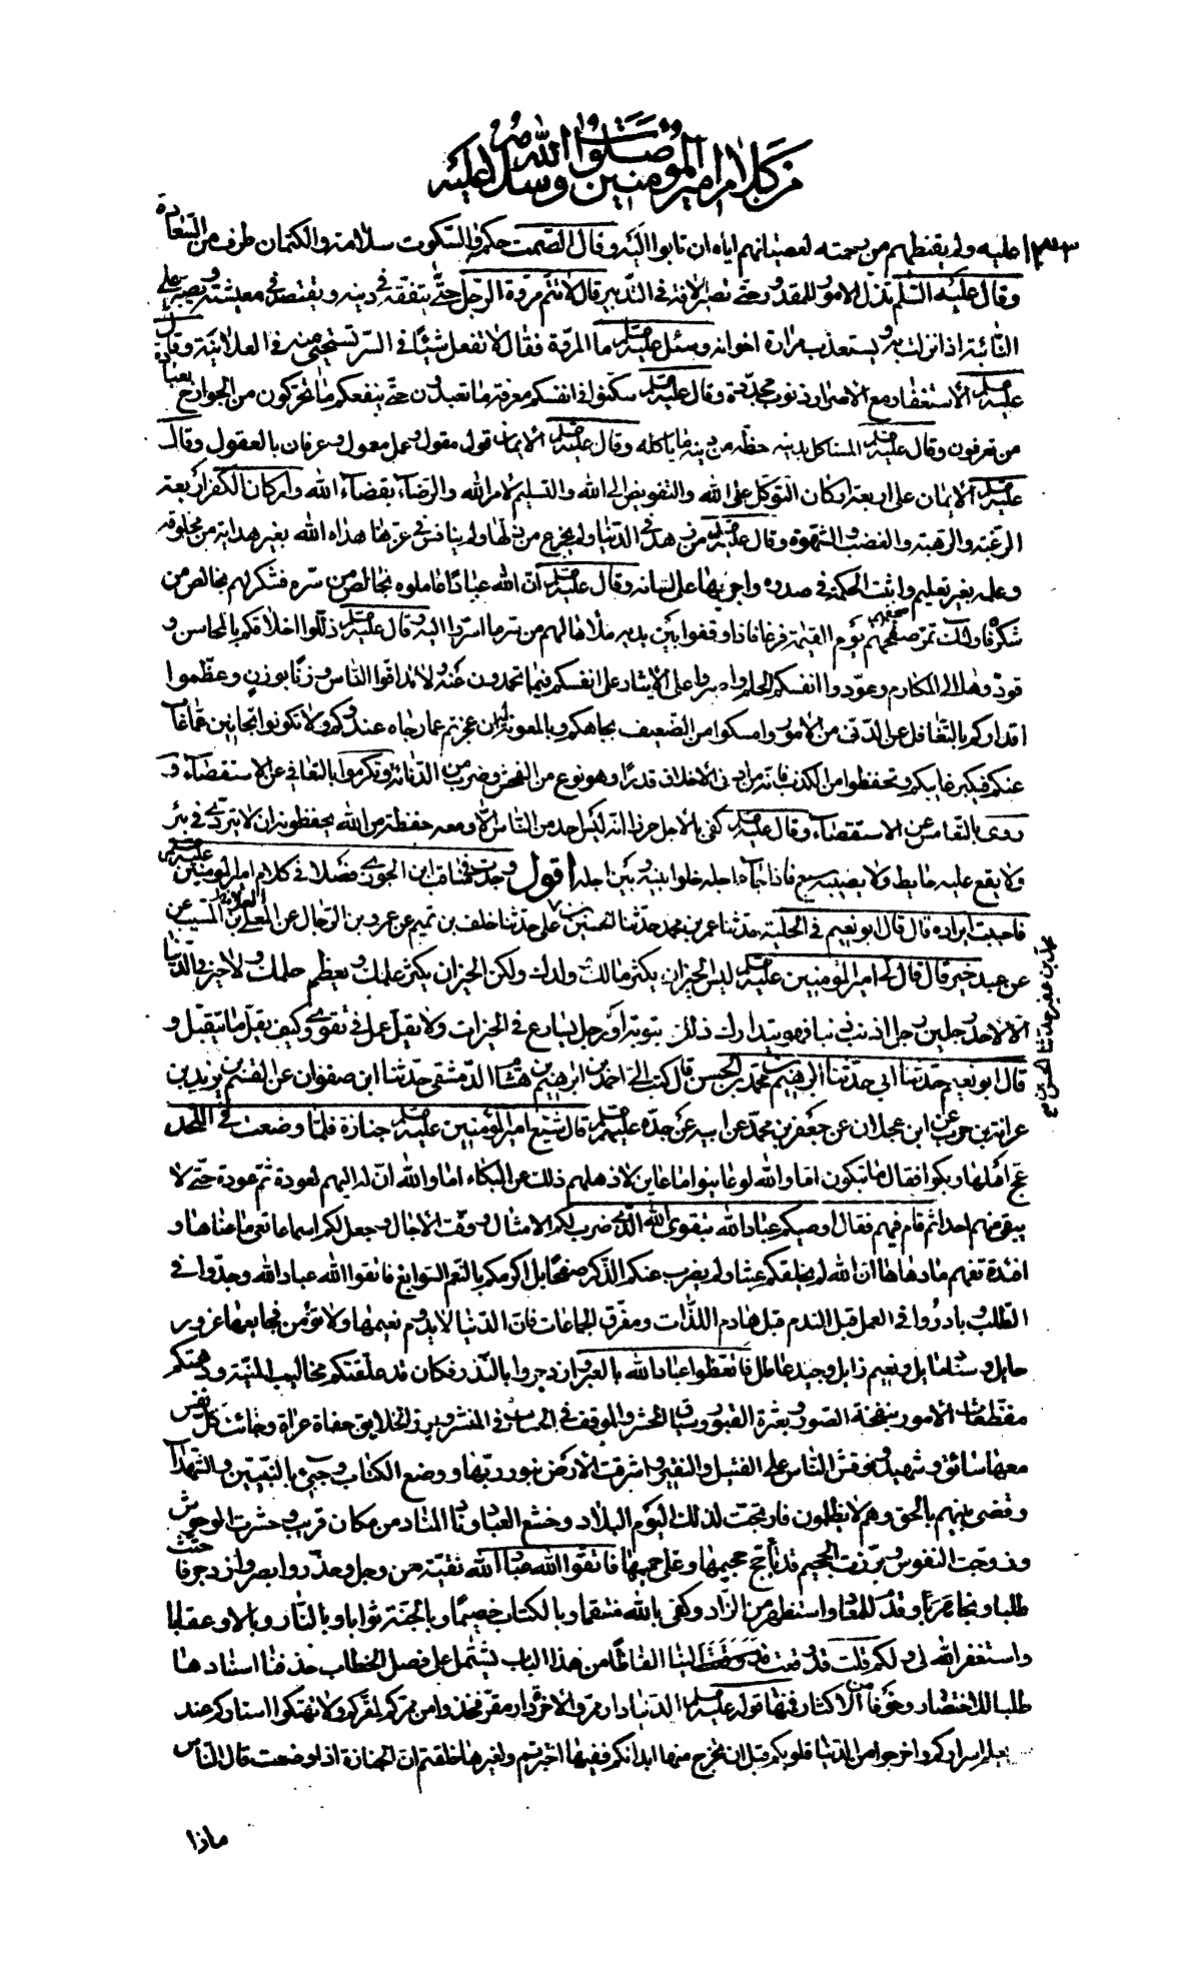 من كلام امير المؤمنين صلوات الله وسلامه عليه
عليه ولم يقنطهم من رحمته لعصيانهم اياه ان تابوا اليه وقال الصمت حكم والسكوت سلامة والكتمان طرف من السعادة
وقال عليه السلم تذل الامور للمقدور حتى تصير الافة في التدبير قال لا تتم مروة الرجل حتى يتفقه في دينه ويقتصد في معيشته ويصبر على
النائبة اذا نزلت به ويستعذب مرارة اخوانه وسئل عليه ما المروة فقال لا تفعل شيئا في السر تستحيي منه في العلانية وقال
عليه الاستغفار مع الاصرار ذنوب مجددة وقال عليه سكنوا في انفسكم معرفة ما تعبدون حتى ينفعكم ما تحركون من الجوارح بعبادة
من تعرفون وقال عليه المستاكل بدينه حظه من دينه ما ياكله وقال عليه الايمان قول مقول وعمل معمول وعرفان بالعقول وقال
عليه الايمان على اربعة اركان التوكل على الله والتفويض الى الله والتسليم لامر الله والرضاء بقضاء الله واركان الكفر اربعة
الرغبة والرهبة والغضب والشهوة وقال عليه من زهد في الدنيا ولم يجزع من ذلها ولم ينافس في عزها هداه الله بغير هداية من مخلوقه
وعلمه بغير تعليم واثبت الحكمة في صدره واجراها على لسانه وقال عليه ان الله عبادا عاملوه بخالص من سره فشكر لهم بخالص من
شكره فاولئك تمر صحفهم يوم القيمة فرغا فاذا وقفوا بين يديه ملأها لهم من سر ما اسروا اليه وقال عليه ذللوا اخلاقكم بالمحاسن و
قودوها الى المكارم وعودوا انفسكم الحلم واصبروا على الايثار على انفسكم فيما تحمدون عنه ولا تداقوا الناس وزنا بوزن وعظموا
اقداركم بالتغافل عن الدني من الامور وامسكوا رمق الضعيف بجاهكم وبالمعونة له ان عجزتم عما رجاه عندكم ولا تكونوا بحاثين عما غاب
عنكم فيكبر غايبكم وتحفظوا من الكذب فانه من ادنى الاخلاق قدرا وهو نوع من الفحش وضرب من الدنائة وتكرموا بالتعامي عن الاستقصاء و
روي بالتعامس عن الاستقصاء وقال عليه كفى بالاجل حرزا انه ليس احد من الناس الا ومعه حفظة من الله يحفظونه ان لا يتردى في بئر
ولا يقع عليه حايط ولا يصيبه سبع فاذا جاء اجله خلوا بينه وبين اجله اقول وجدت في مناقب ابن الجوزي فصلا في كلام امير المؤمنين عليه
فاحببت ايراده قال قال ابو نعيم في الحلية حدثنا عمر بن محمد حدثنا الحسين بن علي حدثنا خلف بن تميم عن عمرو بن الرحال عن العلاء بن المسيب عن
عن عبد خير قال قال لي امير المؤمنين عليه ليس الخير ان يكثر مالك وولدك ولكن الخير ان يكثر علمك ويعظم حلمك ولا خير في الدنيا
الا لاحد رجلين رجل اذنب ذنبا فهو يتدارك ذلك بتوبة او رجل يسارع في الخيرات ولا يقل عمل في تقوى وكيف يقل ما يتقبل و
قال ابو نعيم حدثنا ابي حدثنا ابراهيم بن محمد بن الحسن قال كتب الي احمد بن ابراهيم بن هشام الدمشقي حدثنا ابن صفوان عن القسم بن يزيد بن
عوانة بن حرب عن ابن عجلان عن جعفر بن محمد عن ابيه عن جده عليهم قال شيع امير المؤمنين عليه جنازة فلما وضعت في اللحد
عج اهلها وبكوا فقال ما تبكون اما والله لو عاينوا ما عاين لاذهلهم ذلك عن البكاء اما والله ان له اليهم لعودة ثم عودة حتى لا
يبقى منهم احدا ثم قام فيهم فقال اوصيكم عباد الله بتقوى الله الذي ضرب لكم الامثال ووقت الاجال وجعل لكم اسماعا تعي ما عناها و
افئدة تفهم ما دهاها ان الله لم يخلقكم عبثا ولم يضرب عنكم الذكر صفحا بل اكرمكم بالنعم السوابغ فاتقوا الله عباد الله وجدوا في
الطلب وبادروا في العمل قبل الندم قبل هادم اللذات ومفرق الجماعات فان الدنيا لا يدوم نعيمها ولا تؤمن فجايعها غرور
حايل وسناد مايل ونعيم زايل وجيد عاطل فاتعظوا عباد الله بالعبر وازدجروا بالنذر فكان قد علقتكم مخاليب المنية ودهمتكم
مفظعات الامور بنفخة الصور وبعثرة القبور وسياق المحشر والموقف في الحساب في المنشر وبرز الخلايق حفاة عراة وجائت كل نفس
معها سائق وشهيد ونوقش الناس على الفتيل والنقير واشرقت الارض بنور ربها ووضع الكتاب وجيء بالنبيين والشهداء
وقضي بينهم بالحق وهم لا يظلمون فارتجت لذلك اليوم البلاد وخشع العباد وناد المناد من مكان قريب وحشرت الوحوش
وزوجت النفوس وبرزت الجحيم قد تأجج جحيمها وغلى حميمها فاتقوا الله عباد الله تقية من وجل وحذر وابصر وازدجر فاحتث
طلبا ونجا هربا وقدم للمعاد واستظهر من الزاد وكفى بالله منتقما وبالكتاب خصيما وبالجنة ثوابا وبالنار وبالا وعقابا
واستغفر الله لي ولكم قلت قد وقعت الينا الفاظا من هذا الباب يشتمل على فصل الخطاب حذفنا اسنادها
طلبا للاختصار وخوفا من الاكثار فمنها قوله عليه الدنيا دار ممر والاخرة دار مقر فخذوا من ممركم لمقركم ولا تهتكوا استاركم عند
يعلم اسراركم واخرجوا من الدنيا قلوبكم قبل ان يخرج منها ابدانكم ففيها اختبرتم ولغيرها خلقتم ان الجنازة اذا وضعت قال الناس
ماذا